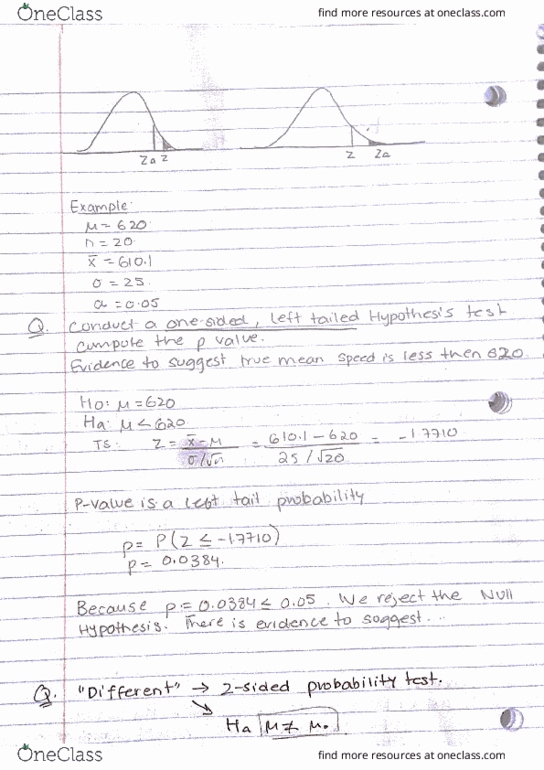 OneClass
find more resources at oneclass.com
Za Z
Z Za
Example:
μ = 620
n = 20
x̄ = 610.1
σ = 25
α = 0.05
Q. Conduct a one-sided, left tailed Hypothesis test
compute the p value.
Evidence to suggest true mean speed is less then 620
Ho: μ = 620
Ha: μ < 620
TS: Z = x̄ - μ / σ/√n = 610.1 - 620 / 25/√20 = -1.7710
P-value is a left tail probability
p = P(Z ≤ -1.7710)
p = 0.0384.
Because p = 0.0384 ≤ 0.05. We reject the Null
Hypothesis. There is evidence to suggest...
Q. "Different" → 2-sided probability test.
↘
Ha μ ≠ μo
OneClass
find more resources at oneclass.com